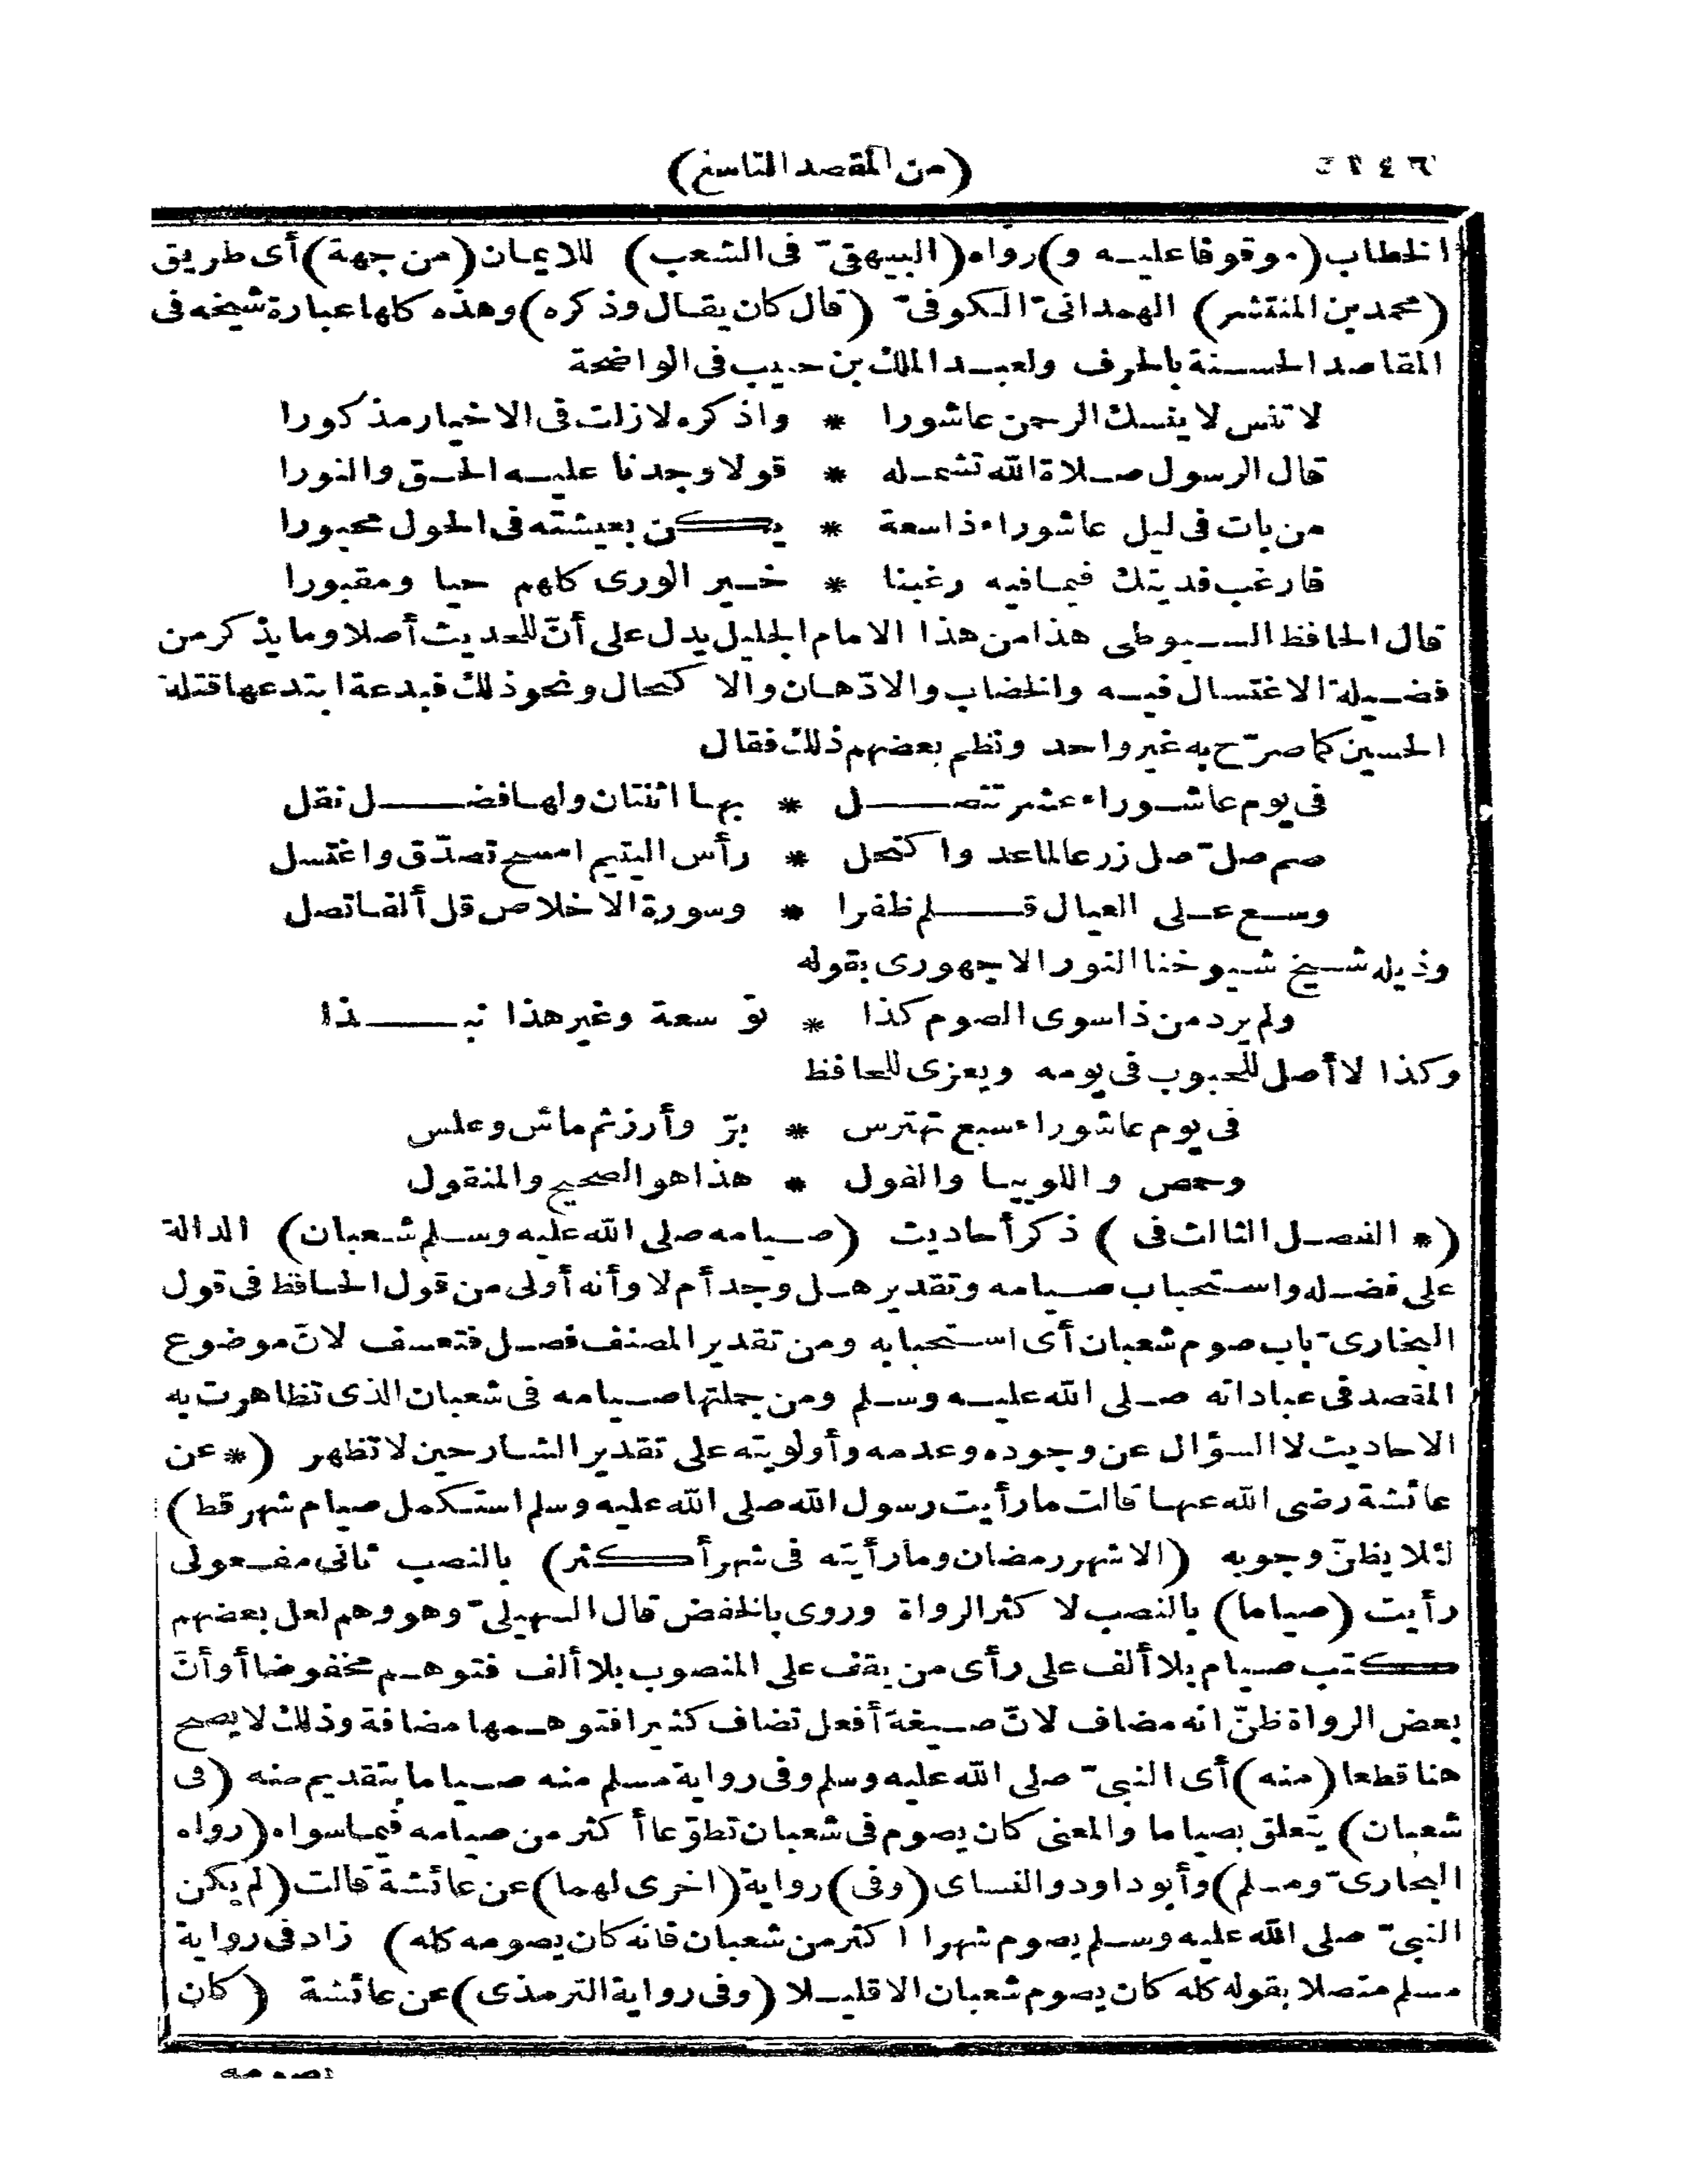 (من المقصد التاسع)
الخطاب (موقوفا عليه و) رواه (البيهقى فى الشعب) للايمان (من جهة) أى طريق
(محمد بن المنتشر) الهمدانى الكوفى (قال كان يقال وذكره) وهذه كلها عبارة شيخه فى
المقاصد الحسنة بالحرف ولعبد الملك بن حبيب فى الواضحة
لا تنس لا ينسك الرحمن عاشورا * واذكره لازلت فى الاخيار مذكورا
قال الرسول صلاة الله تشمله * قولا وجدنا عليه الحق والنورا
من بات فى ليل عاشوراء ذا سعة * يكن بعيشته فى الحول محبورا
فارغب فديتك فيما فيه رغبنا * خير الورى كلهم حيا ومقبورا
قال الحافظ السيوطى هذا من هذا الامام الجليل يدل على أنّ للحديث أصلا وما يذكر من
فضيلة الاغتسال فيه والخضاب والادّهان والاكتحال ونحو ذلك فبدعة ابتدعها قتلة
الحسين كما صرّح به غير واحد ونظم بعضهم ذلك فقال
فى يوم عاشوراء عشر تتصل * بها اثنتان ولها فضل نقل
صم صلّ صل زر عالما عد واكتحل * رأس اليتيم امسح تصدّق واغتسل
وسع على العيال قلم ظفرا * وسورة الاخلاص قل ألفا تصل
وذيله شيخ شيوخنا النور الاجهورى بقوله
ولم يرد من ذا سوى الصوم كذا * توسعة وغير هذا نبذا
وكذا لا أصل للحبوب فى يومه ويعزى للحافظ
فى يوم عاشوراء سبع تهترس * برّ وأرز ثم ماش وعلس
وحمص واللوبيا والفول * هذا هو الصحيح والمنقول
(* الفصل الثالث فى) ذكر أحاديث (صيامه صلى الله عليه وسلم شعبان) الدالة
على فضله واستحباب صيامه وتقدير هل وجد أم لا وأنه أولى من قول الحافظ فى قول
البخارىّ باب صوم شعبان أى استحبابه ومن تقدير المصنف فصل فتعسف لانّ موضوع
المقصد فى عباداته صلى الله عليه وسلم ومن جملتها صيامه فى شعبان الذى تظاهرت به
الاحاديث لا السؤال عن وجوده وعدمه وأولويته على تقدير الشارحين لا تظهر (* عن
عائشة رضى الله عنها قالت ما رأيت رسول الله صلى الله عليه وسلم استكمل صيام شهر قط)
لئلا يظنّ وجوبه (الا شهر رمضان وما رأيته فى شهر أكثر) بالنصب ثانى مفعولى
رأيت (صياما) بالنصب لاكثر الرواة وروى بالخفض قال السهيلىّ وهو وهم لعل بعضهم
كتب صيام بلا ألف على رأى من يقف على المنصوب بلا ألف فتوهم مخفوضا أو أنّ
بعض الرواة ظنّ انه مضاف لانّ صيغة أفعل تضاف كثيرا فتوهمها مضافة وذلك لا يصح
هنا قطعا (منه) أى النبىّ صلى الله عليه وسلم وفى رواية مسلم منه صياما بتقديم منه (فى
شعبان) يتعلق بصياما والمعنى كان يصوم فى شعبان تطوّعا أكثر من صيامه فيما سواه (رواه
البخارىّ ومسلم) وأبو داود والنساى (وفى) رواية (اخرى لهما) عن عائشة قالت (لم يكن
النبىّ صلى الله عليه وسلم يصوم شهرا اكثر من شعبان فانه كان يصومه كله) زاد فى رواية
مسلم متصلا بقوله كله كان يصوم شعبان الا قليلا (وفى رواية الترمذى) عن عائشة (كان